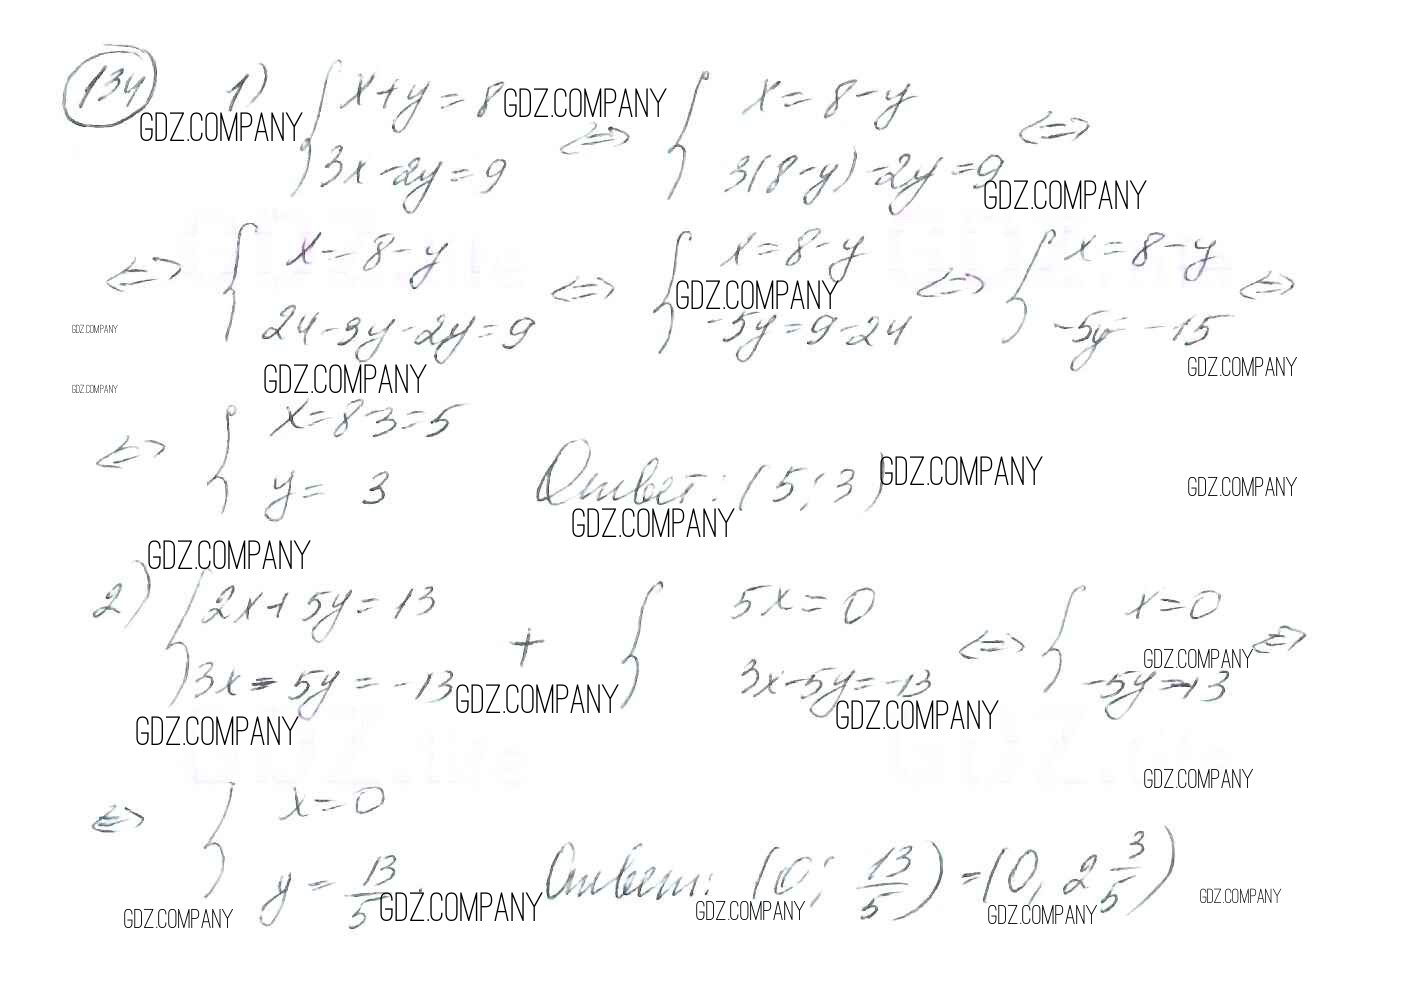 134 1) { x+y=8 GDZ.COMPANY <=> { x=8-y <=>
GDZ.COMPANY
3x-2y=9 3(8-y)-2y=9
GDZ.COMPANY
<=> { x=8-y <=> { x=8-y <=> { x=8-y <=>
GDZ.COMPANY
24-3y-2y=9 -5y=9-24 -5y=-15
GDZ.COMPANY
GDZ.COMPANY
GDZ.COMPANY GDZ.COMPANY
<=> { x=8-3=5
y=3 Ответ: (5;3) GDZ.COMPANY
GDZ.COMPANY
GDZ.COMPANY
GDZ.COMPANY
2) { 2x+5y=13 + { 5x=0 <=> { x=0 <=>
GDZ.COMPANY
3x-5y=-13 3x-5y=-13 -5y=-13
GDZ.COMPANY GDZ.COMPANY
GDZ.COMPANY
GDZ.COMPANY
<=> { x=0
y=13/5 Ответ: (0; 13/5)=(0, 2 3/5)
GDZ.COMPANY GDZ.COMPANY GDZ.COMPANY GDZ.COMPANY GDZ.COMPANY